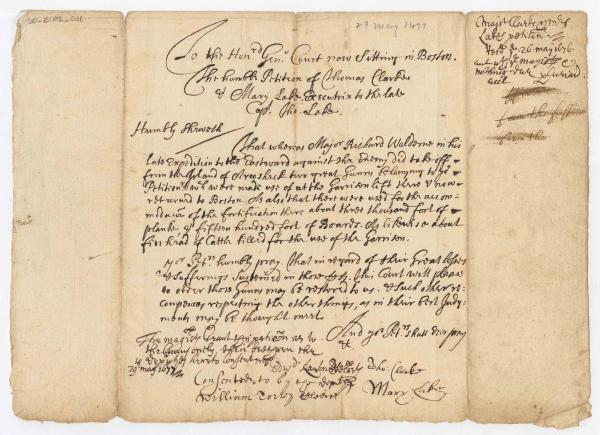 29 May 1677
To the Honrd Genll Court now Sitting in Boston.
The humble Petition of Thomas Clarke
& Mary Lake Executrix to the late
Capt. Tho: Lake.
Humbly Sheweth
That whereas Major Richard Walderne in his
late Expedition to the Eastward against the Enemy did take off
from the Island of Arowsack two great Gunns belonging to yor
Petitionrs wch were made use of at the Garrison left there & now
returned to Boston. As also that there were used for the accom-
modacion of the fortification there about three thousand foot of
planke & fifteen hundred foot of Boards. As likewise about
five head of Cattle killed for the use of the Garrison.
yor Petrs humbly pray. That in regard of their Great losses
& Sufferings Sustained in those this Court will please
to order those Gunns may be restored to us. & such other re-
compences respecting the other things, as in their best Judg-
ments may be thought meet.
And yor Petrs shall ever pray
&c.
The magists Grant this petition as to
the Gunns only, their brethren the
deputyes hereto consenting
29 may 1677 Edwd Rawson Secrety
Tho: Clarke
Consented to by the deputies
Mary Lake
William Torrey Cleric
Major Clarks & mrs
Lakes petition
26 may 1676